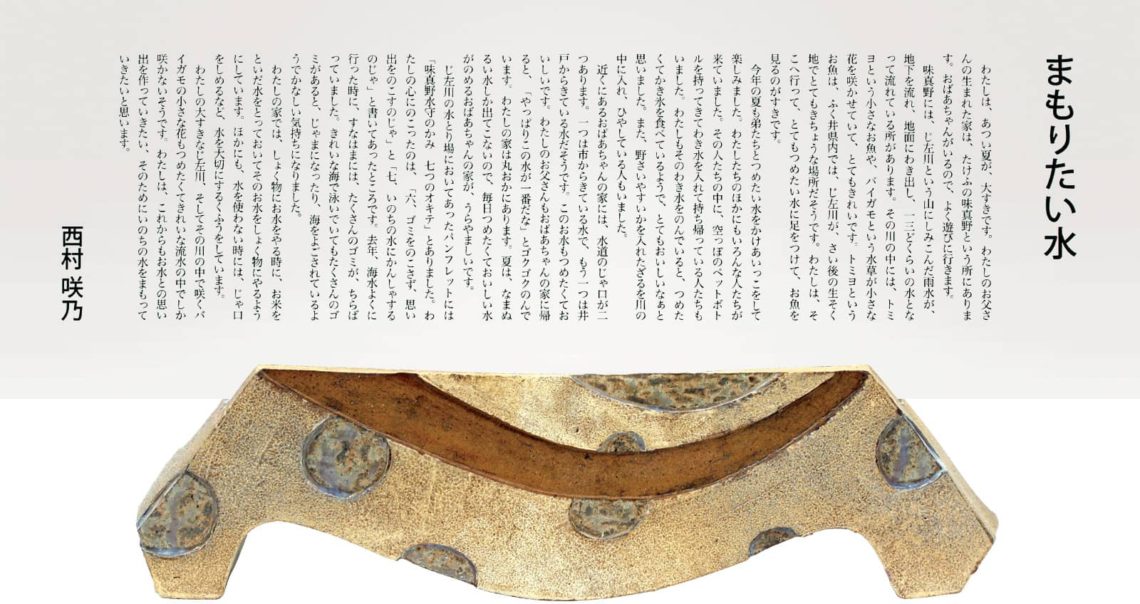 まもりたい水
　わたしは、あつい夏が、大すきです。わたしのお父さ
んの生まれた家は、たけふの味真野という所にありま
す。おばあちゃんがいるので、よく遊びに行きます。
　味真野には、じ左川という山にしみこんだ雨水が、
地下を流れ、地面にわき出し、一二三どくらいの水とな
って流れている所があります。その川の中には、トミ
ヨという小さなお魚や、バイガモという水草が小さな
花を咲かせていて、とてもきれいです。トミヨという
お魚は、ふく井県内では、じ左川が、さい後の生そく
地でとてもきちょうな場所だそうです。わたしは、そ
こへ行って、とてもつめたい水に足をつけて、お魚を
見るのがすきです。
　今年の夏も弟たちとつめたい水をかけあいっこをして
楽しみました。わたしたちのほかにもいろんな人たちが
来ていました。その人たちの中に、空っぽのペットボト
ルを持ってきてわき水を入れて持ち帰っている人たちも
いました。わたしもそのわき水をのんでいると、つめた
くてかき氷を食べているようで、とてもおいしいなぁと
思いました。また、野さいやすいかを入れたざるを川の
中に入れ、ひやしている人もいました。
　近くにあるおばあちゃんの家には、水道のじゃ口が二
つあります。一つは市からきている水で、もう一つは井
戸からきている水だそうです。このお水もつめたくてお
いしいです。わたしのお父さんもおばあちゃんの家に帰
ると、「やっぱりこの水が一番だな」とゴクゴクのんで
います。わたしの家は丸おかにあります。夏は、なまぬ
るい水しか出てこないので、毎日つめたくておいしい水
がのめるおばあちゃんの家が、うらやましいです。
　じ左川の水とり場においてあったパンフレットには
「味真野水守のかみ　七つのオキテ」とありました。わ
たしの心にのこったのは、「六、ゴミをのこさず、思い
出をのこすのじゃ」と「七、いのちの水にかんしゃする
のじゃ」と書いてあったところです。去年、海水よくに
行った時に、すなはまには、たくさんのゴミが、ちらば
っていました。きれいな海で泳いでいてもたくさんのゴ
ミがあると、じゃまになったり、海をよごされているよ
うでかなしい気持ちになりました。
　わたしの家では、しょく物にお水をやる時に、お米を
といだ水をとっておいてそのお水をしょく物にやるよう
にしています。ほかにも、水を使わない時には、じゃ口
をしめるなど、水を大切にするくふうをしています。
　わたしの大すきなじ左川、そしてその川の中で咲くバ
イガモの小さな花もつめたくてきれいな流水の中でしか
咲かないそうです。わたしは、これからもお水との思い
出を作っていきたい、そのためにいのちの水をまもって
いきたいと思います。
西村 咲乃